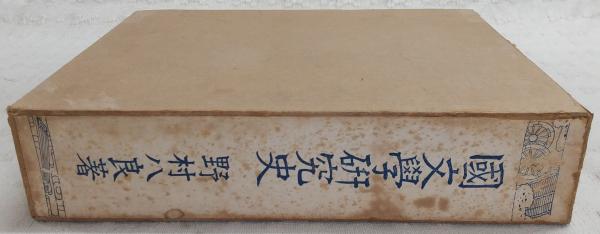 國文學研究史
野村八良著